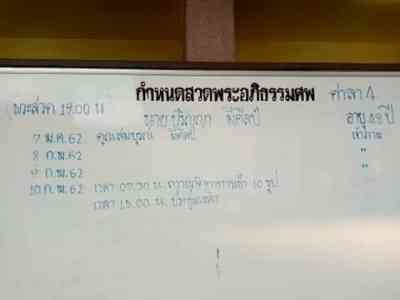 กำหนดสวดพระอภิธรรมศพ ศาลา 4
พระสวด 19.00 น นาย ปริญญา มีศิลป์ อายุ 49 ปี
7 ม.ค.62 คุณสมบูรณ์ มีศิลป์ เจ้าภาพ
8 ก.พ.62 "
9 ก.พ.62 "
10 ก.พ.62 เวลา 07.30 น. ถวายภัตตาหารเช้า 10 รูป
เวลา 15.00 น.